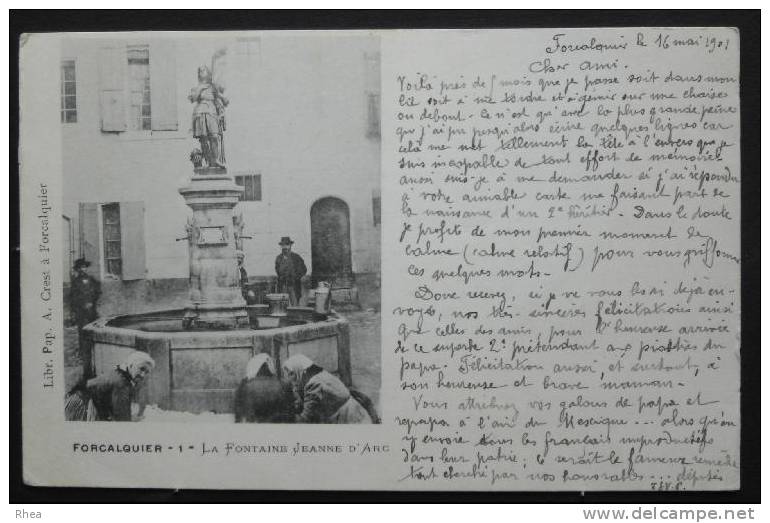 Forcalquier le 16 mai 1901
Cher ami.
Voilà près de 5 mois que je passe soit dans mon
lit soit à me tordre et à gémir sur une chaise
ou debout. Ce n'est qu'avec la plus grande peine
que j'ai pu jusqu'alors écrire quelques lignes car
celà me met tellement la tête à l'envers que je
suis incapable de tout effort de mémoire
aussi suis-je à me demander si j'ai répondu
à votre aimable carte me faisant part de
la naissance d'un 2e héritier. Dans le doute
je profite de mon premier moment de
calme (calme relatif) pour vous griffonner
ces quelques mots.
Donc recevez, si je ne vous les ai déjà en-
voyées, nos très sincères félicitations ainsi
que celles des amis, pour l'heureuse arrivée
de ce superbe 2e prétendant aux piastres du
papa. Félicitations aussi, et surtout, à
son heureuse et brave maman.
Vous attribuez vos galons de papa et
repapa à l'air du Mexique... alors qu'on
y envoie tous les français improductifs
dans leur patrie; ce serait le fameux remède
tant cherché par nos honorables... députés
Libr. Pap. A. Crest à Forcalquier
FORCALQUIER - 1 - LA FONTAINE JEANNE D'ARC
http://www.delcampe.net